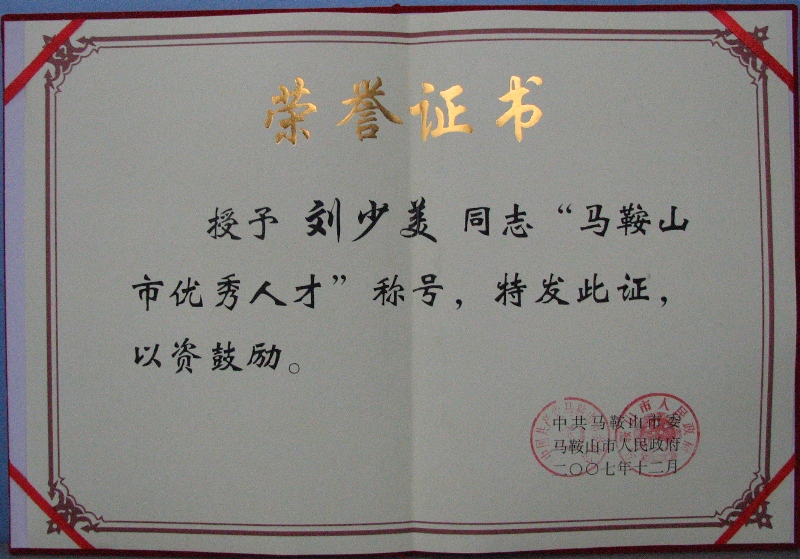 荣誉证书
授予 刘少美 同志“马鞍山
市优秀人才”称号，特发此证，
以资鼓励。
中共马鞍山市委
马鞍山市人民政府
二〇〇七年十二月